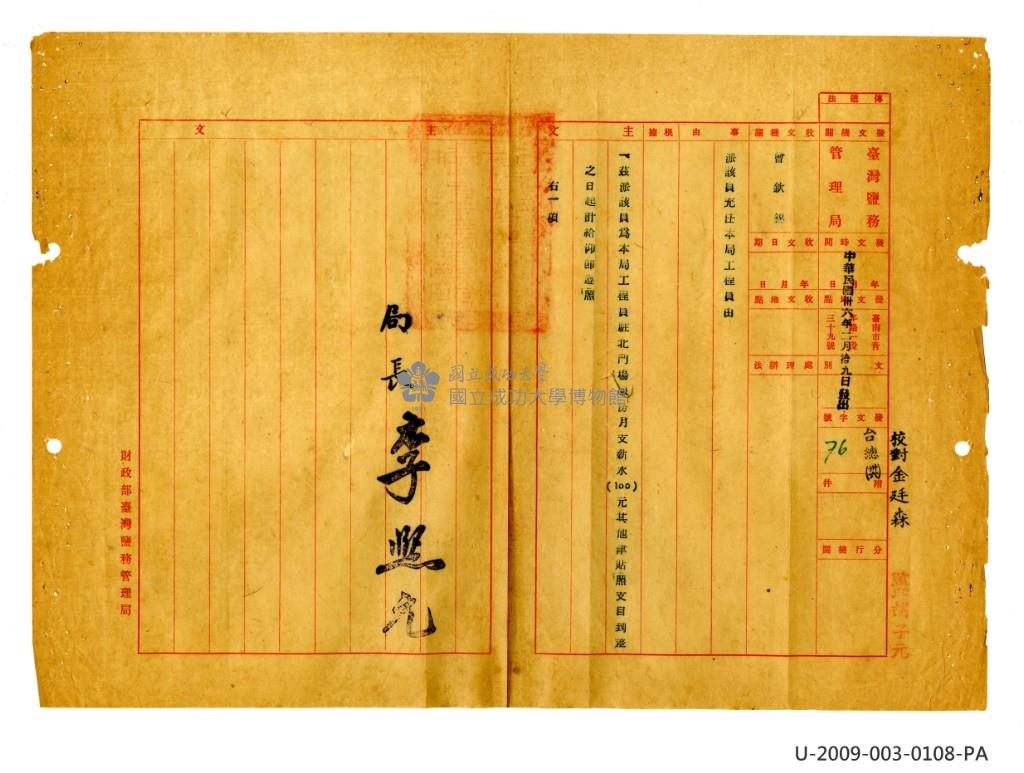 傳遞法
發文機關
臺灣鹽務
管理局
收文機關
曾欽
事由
派該員充任本局工程員由
根據
發文時間
收文日期
中華民國卅六年二月拾九日發出
年月日
年月日
發文地點
收文地點
臺南市青
年路一段
三十九號
文別
處理辦法
發文字號
台總
76
附件
分行機關
校對金廷森
主文
茲派該員為本局工程員駐北門場 月支薪水(100)元其他津貼照支自到差
之日起計給仰即遵照
右一項
主文
局長李
財政部臺灣鹽務管理局
國立成功大學
國立成功大學博物館
U-2009-003-0108-PA